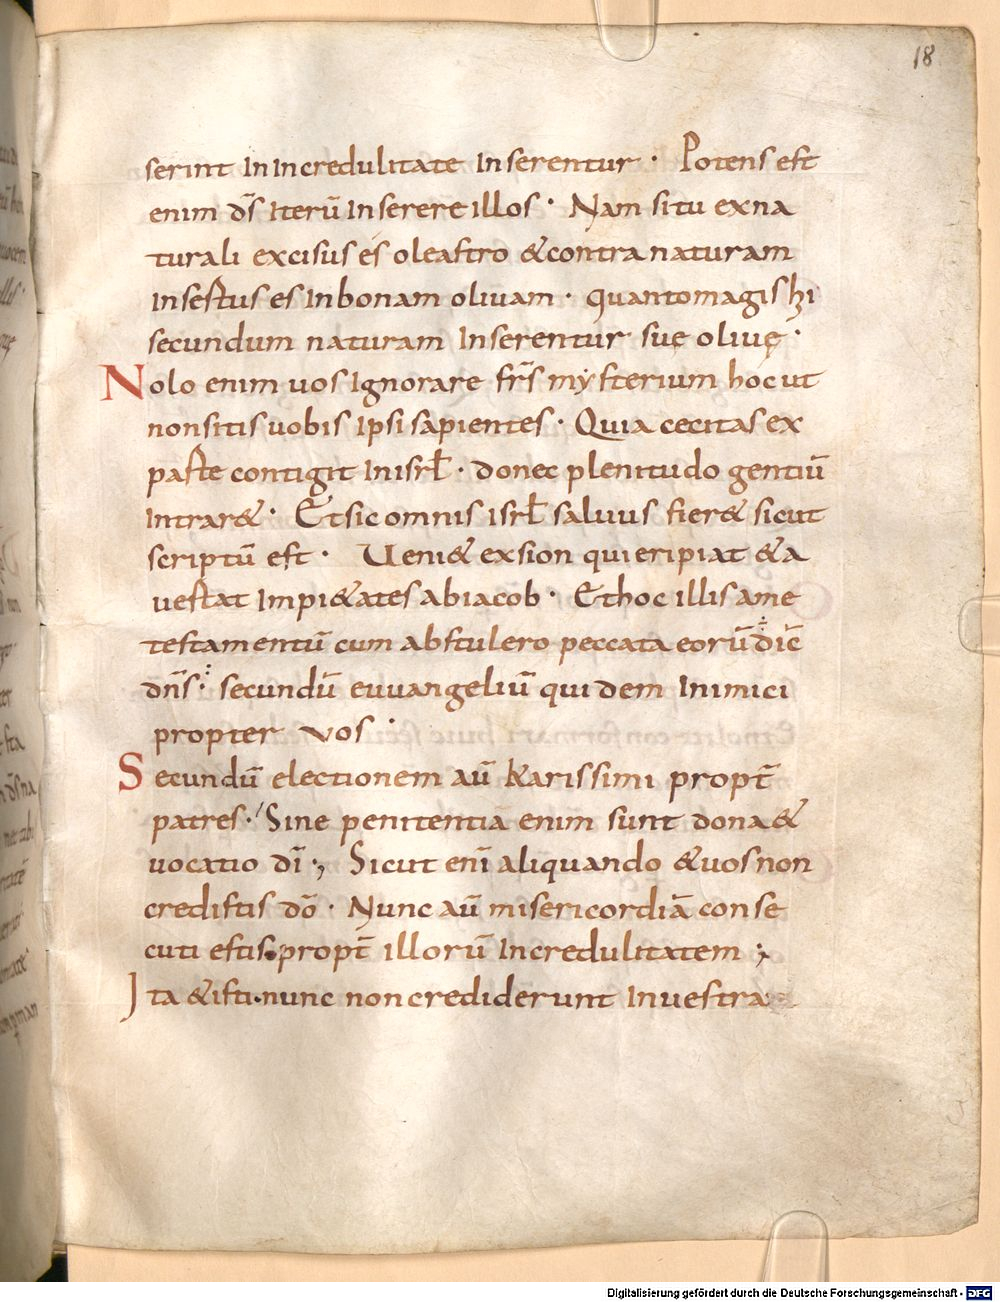 18
serint In Incredulitate Inserentur · Potens est
enim d̄s Iterū Inserere illos · Nam si tu ex na
turali excisus es oleastro & contra naturam
Insestus es In bonam oliuam · quanto magis hi
secundum naturam Inserentur suę oliuę ·
Nolo enim uos Ignorare fr̄s mysterium hoc ut
non sitis uobis Ipsi sapientes · Quia cecitas ex
paste contigit In isrł · donec plenitudo gentiū
Intrar& · Et sic omnis isrł saluus fier& sicut
scriptū est · Ueni& ex sion qui eripiat & a
uestat Impi&ates ab iacob · Et hoc illis a me
testamentū cum abstulero peccata eorū dic̄
dn̄s · secundū euuangeliū quidem Inimici
propter vos ·
Secundū electionem aū Karissimi propt̄
patres · Sine penitentiā enim sunt dona &
uocatio dī ; Sicut enī aliquando & uos non
credistis dō · Nunc aū misericordiā conse
cuti estis propt̄ illorū Incredulitatem ;
Ita & isti nunc non crediderunt In uestra
Digitalisierung gefördert durch die Deutsche Forschungsgemeinschaft - DFG